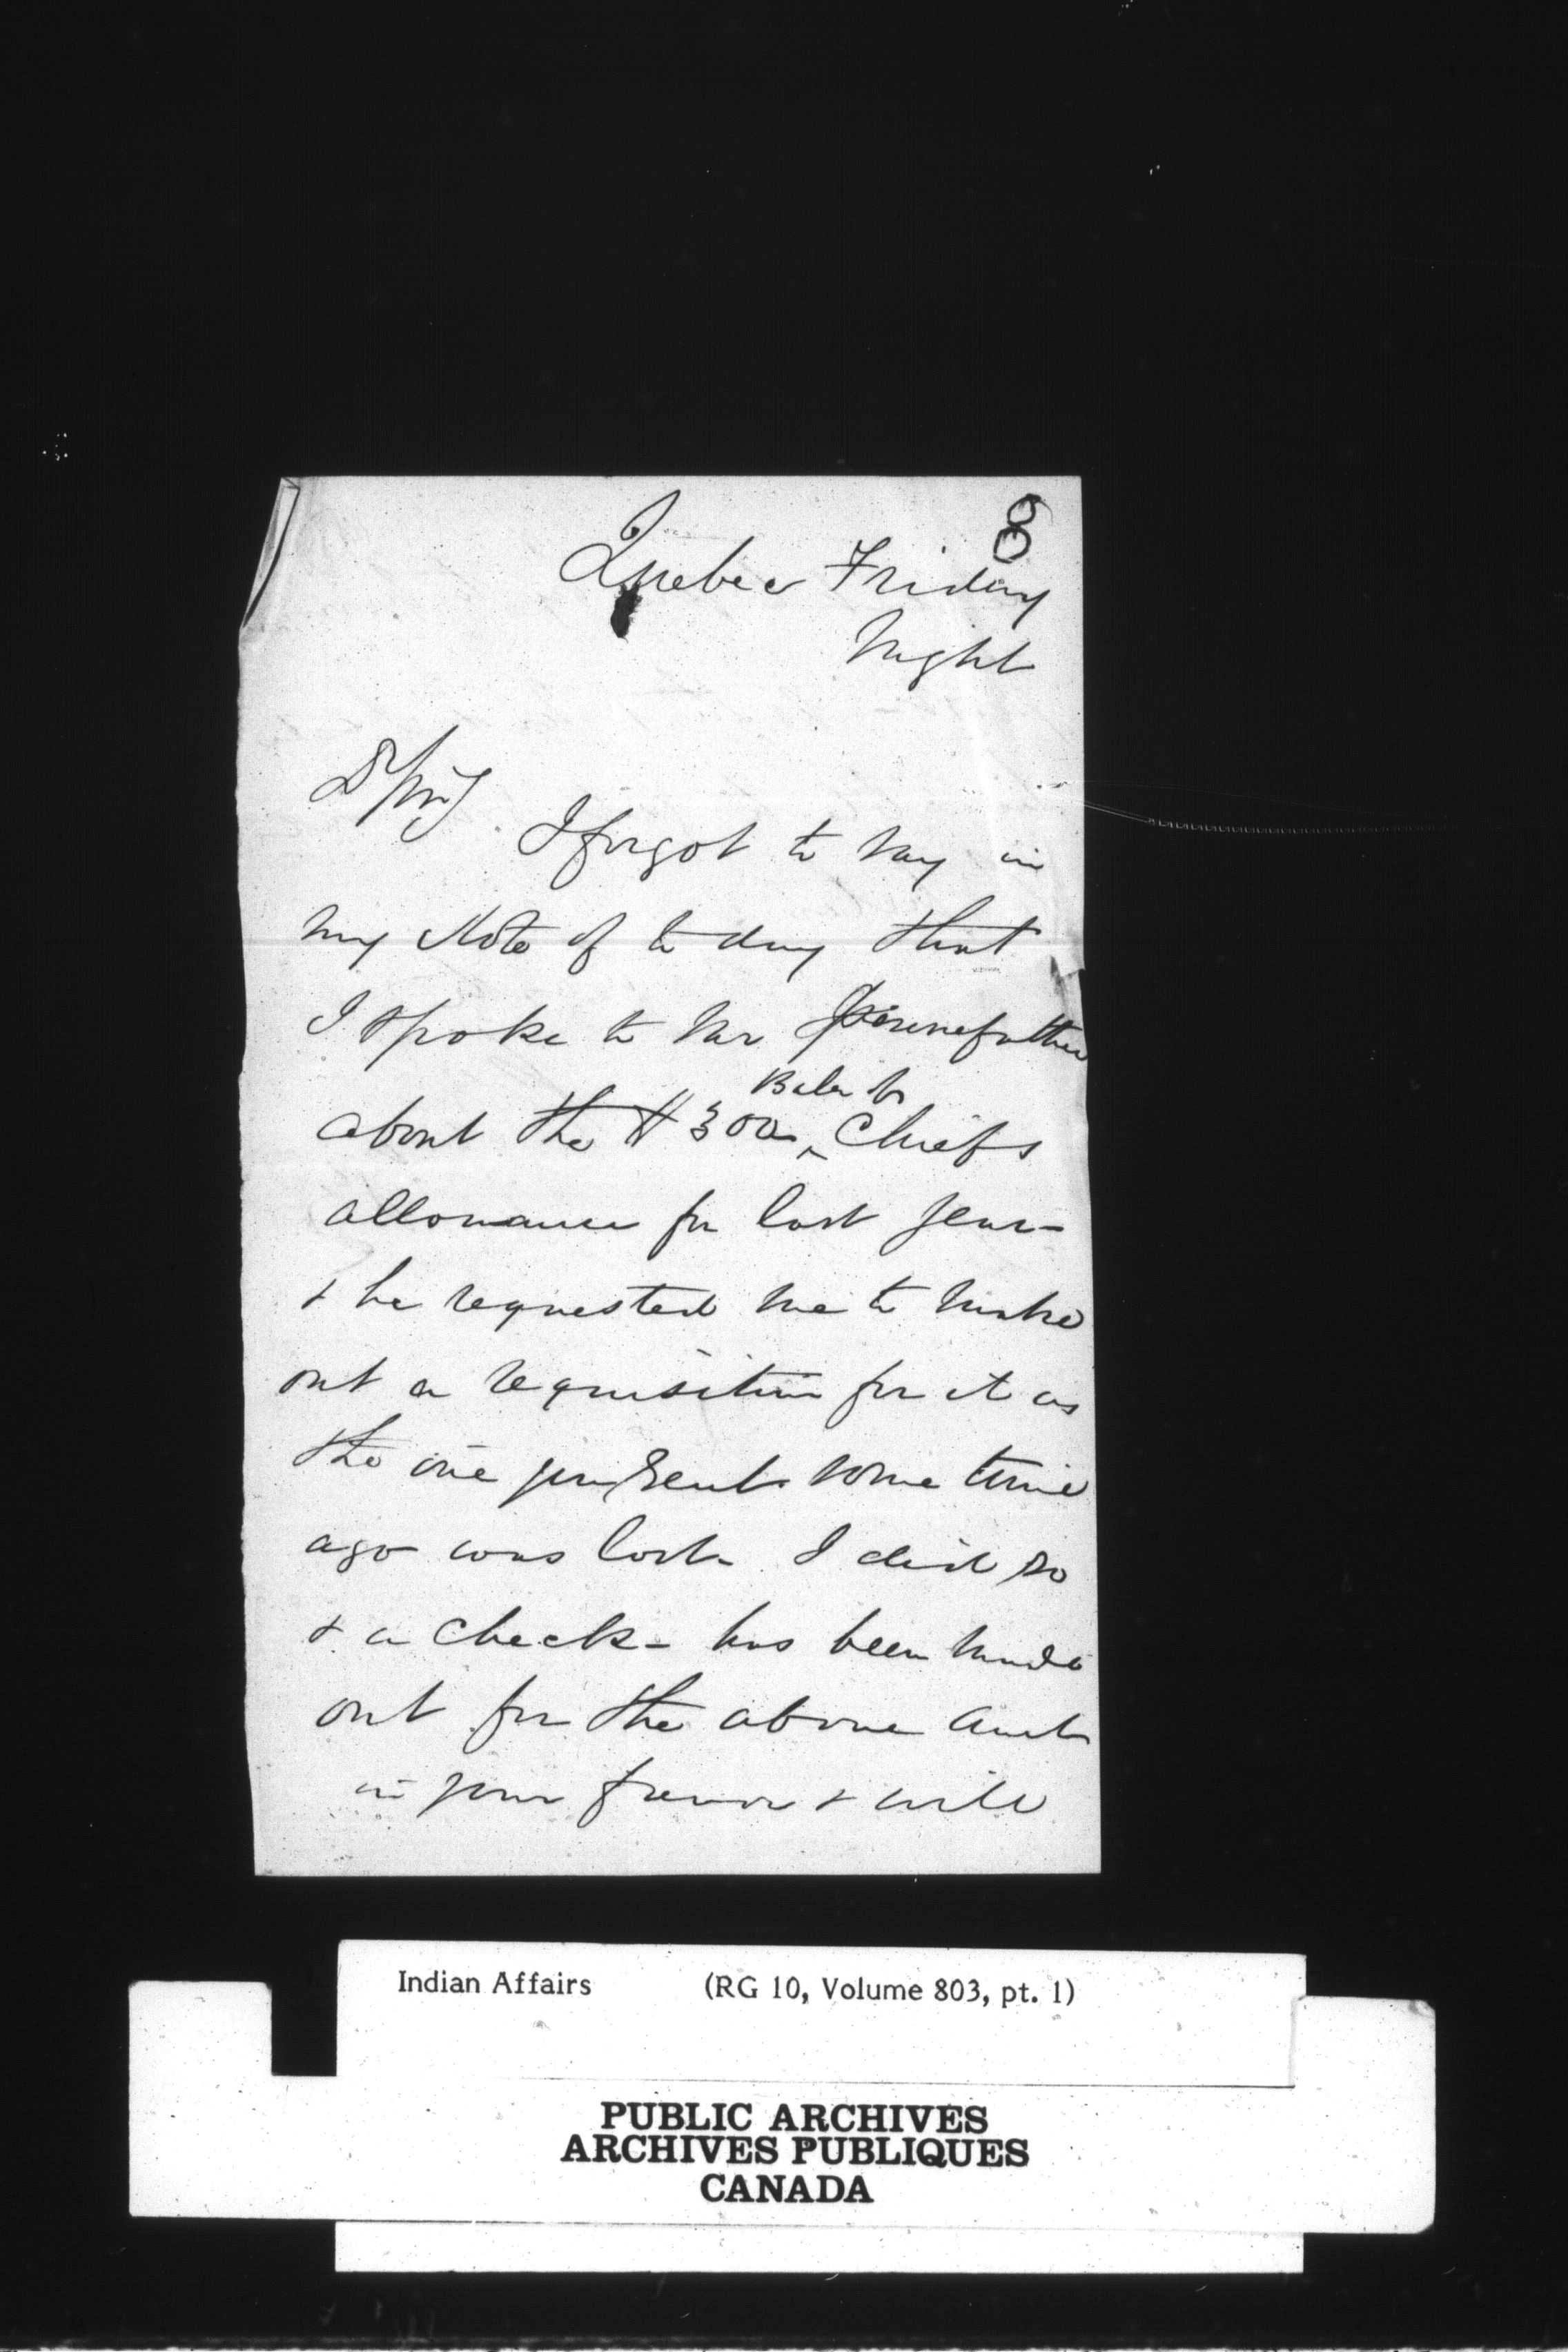 8
Quebec Friday
Night
D Sir
I forgot to say in
my Note of to day that
I spoke to Mr Pennefather
about the $300 Chiefs
allowance for last year -
& he requested me to make
out a requisition for it as
the one you sent some time
ago was lost I did so
& a check - has been made
out for the above amt
in your favor & will
Indian Affairs (RG 10, Volume 803, pt. 1)
PUBLIC ARCHIVES
ARCHIVES PUBLIQUES
CANADA